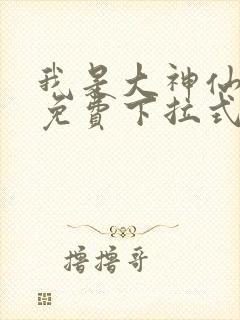 我是大神仙
免費下拉式
撸撸哥